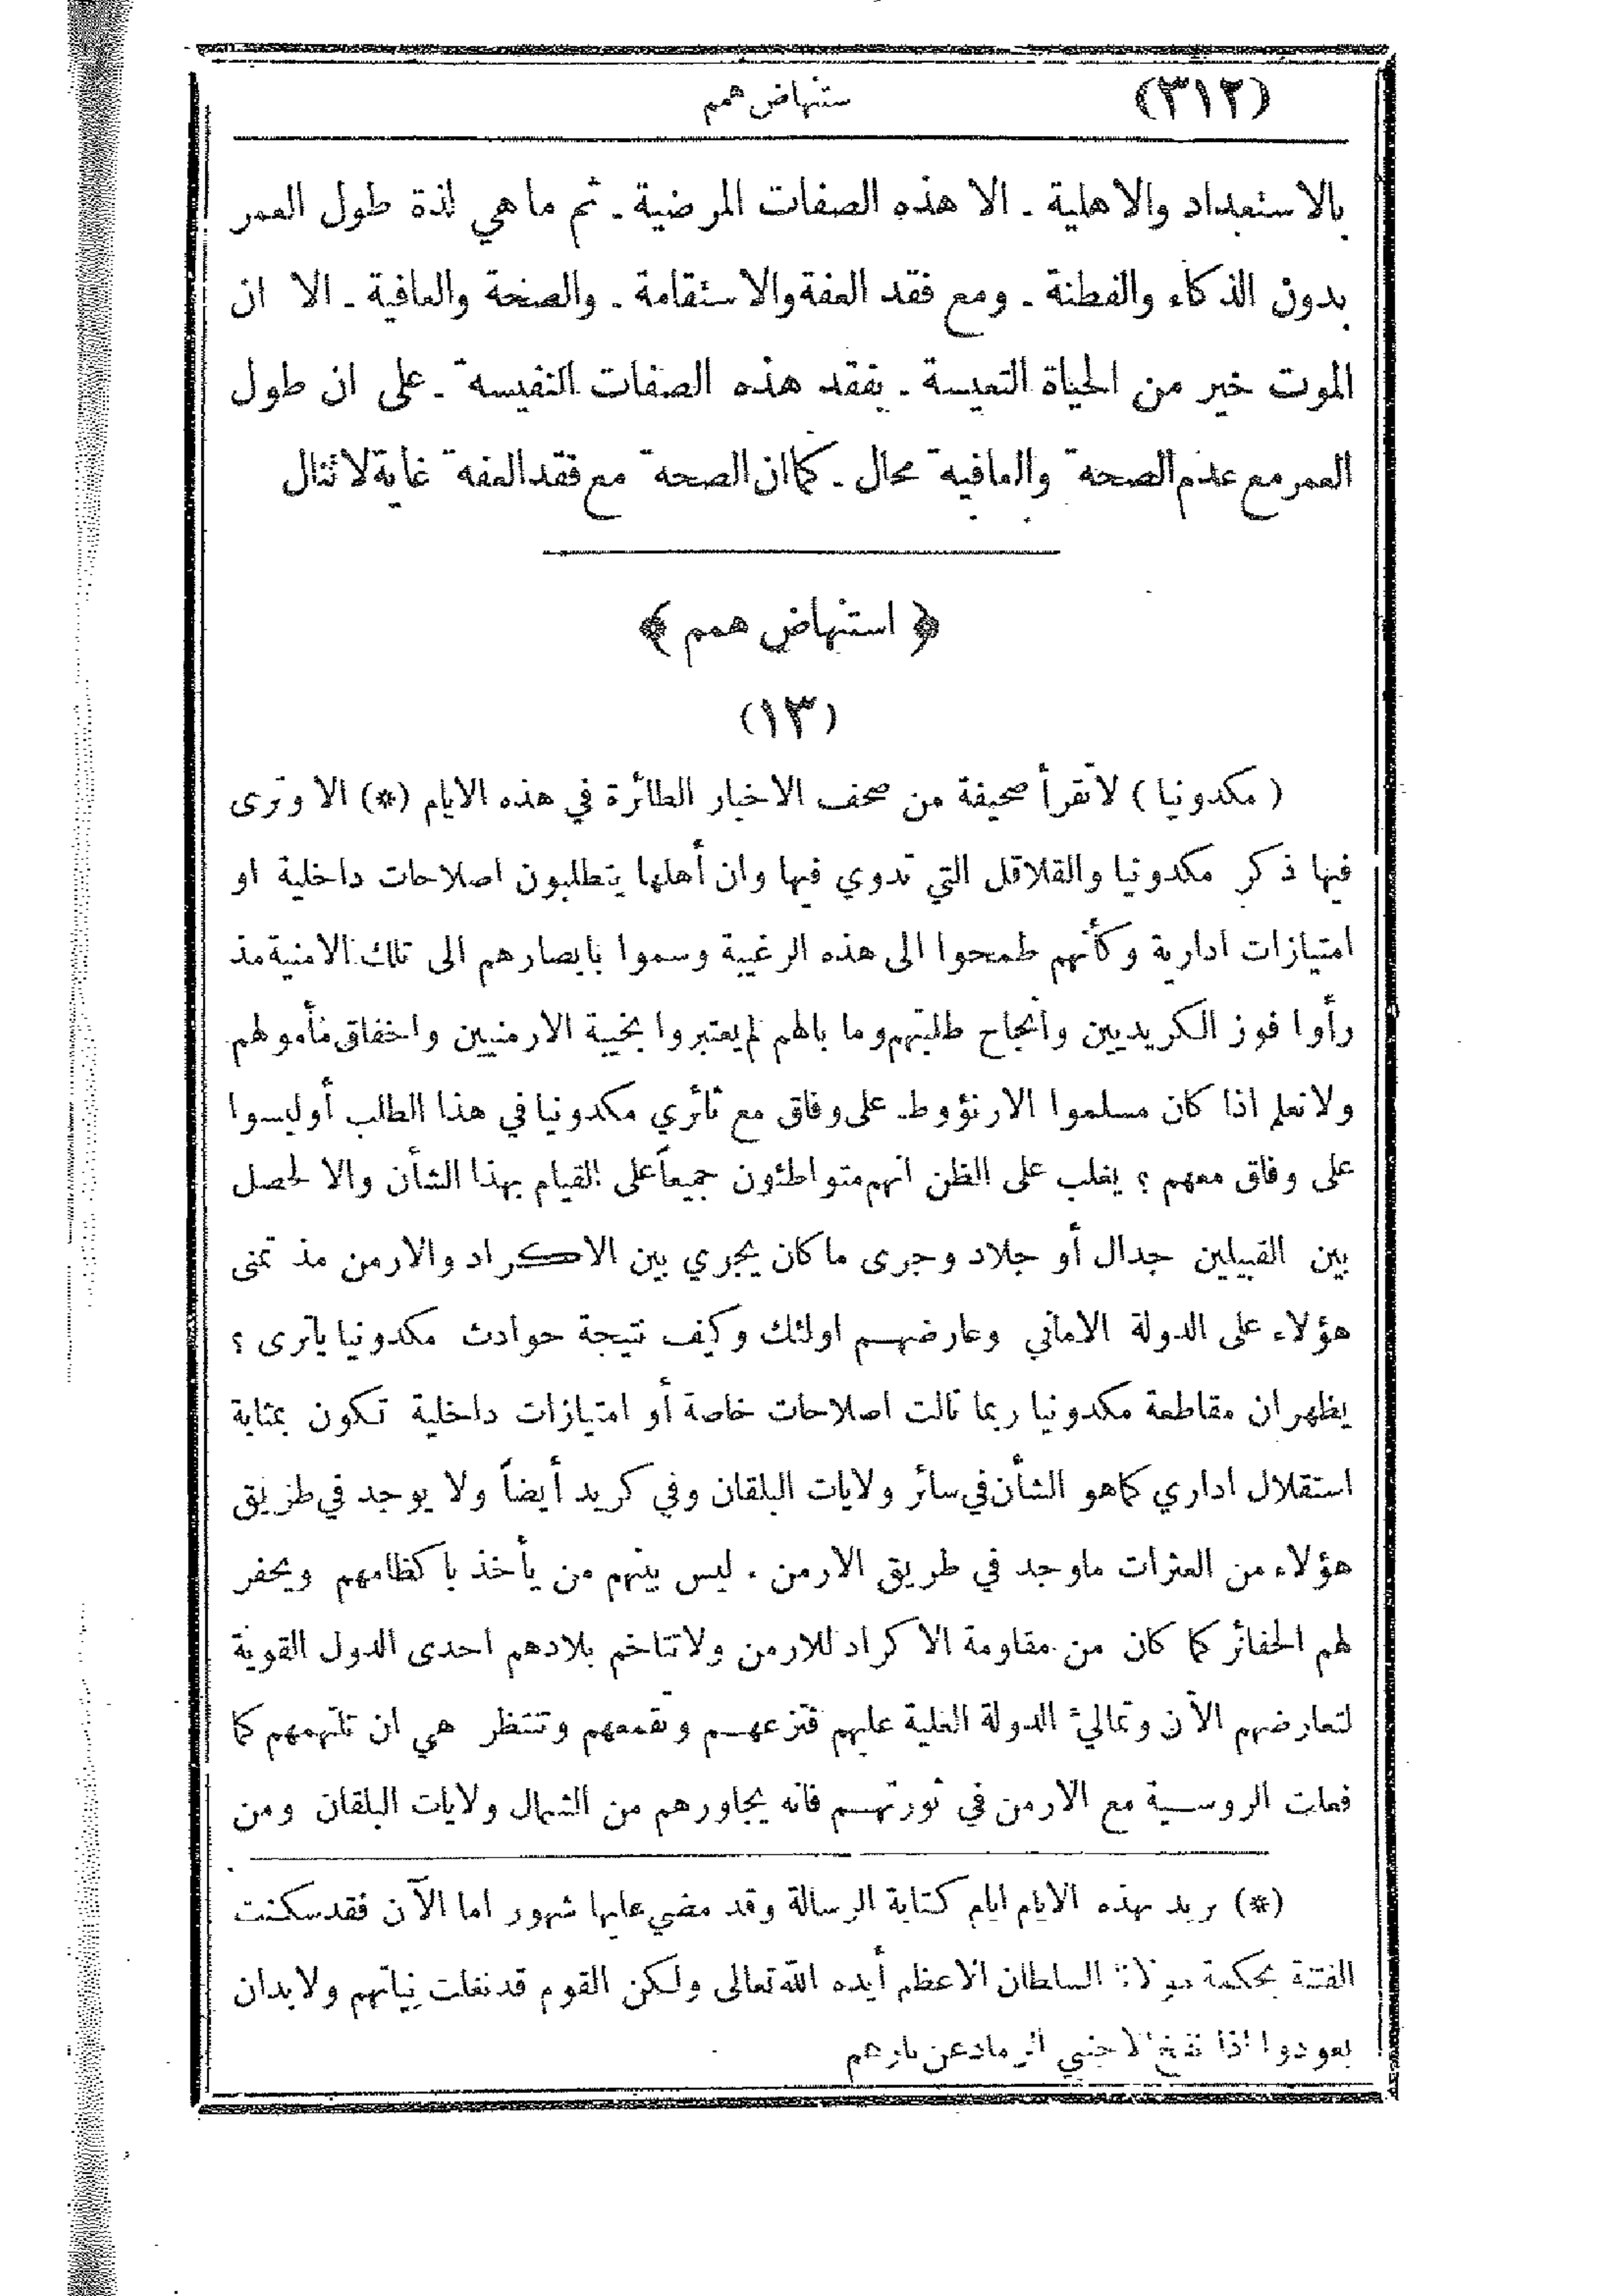 (٣١٢) ستنهاض همم
بالاستعداد والاهلية ـ الا هذه الصفات المرضية ـ ثم ما هي لذة طول العمر
بدون الذكاء والفطنة ـ ومع فقد العفة والاستقامة ـ والصحة والعافية ـ الا ان
الموت خير من الحياة التعيسة ـ بفقد هذه الصفات النفيسة ـ على ان طول
العمر مع عدم الصحة والعافية محال ـ كما ان الصحة مع فقد العفة غاية لا تنال
﴿ استنهاض همم ﴾
(١٣)
( مكدونيا ) لا تقرأ صحيفة من صحف الاخبار الطائرة في هذه الايام (*) الا وترى
فيها ذكر مكدونيا والقلاقل التي تدوي فيها وان أهلها يتطلبون اصلاحات داخلية او
امتيازات ادارية وكأنهم طمحوا الى هذه الرغيبة وسموا بابصارهم الى تلك الامنية مذ
رأوا فوز الكريديين وانجاح طلبتهم وما بالهم لم يعتبروا بخيبة الارمنيين واخفاق مأمولهم
ولا نعلم اذا كان مسلموا الارنؤوط على وفاق مع ثائري مكدونيا في هذا الطلب أو ليسوا
على وفاق معهم ؟ يغلب على الظن انهم متواطئون جميعاً على القيام بهذا الشأن والا لحصل
بين القبيلين جدال أو جلاد وجرى ما كان يجري بين الاكراد والارمن مذ تمنى
هؤلاء على الدولة الاماني وعارضهم اولئك وكيف نتيجة حوادث مكدونيا ياترى ؟
يظهر ان مقاطعة مكدونيا ربما نالت اصلاحات خاصة أو امتيازات داخلية تكون بمثابة
استقلال اداري كما هو الشأن في سائر ولايات البلقان وفي كريد أيضاً ولا يوجد في طريق
هؤلاء من العثرات ماوجد في طريق الارمن . ليس بينهم من يأخذ باكظامهم ويحفر
لهم الحفائر كما كان من مقاومة الاكراد للارمن ولا تتاخم بلادهم احدى الدول القوية
لتعارضهم الآن وتمالئ الدولة العلية عليهم فتزعهم وتقمعهم وتنتظر هي ان تلتهمهم كما
فعلت الروسية مع الارمن في ثورتهم فانه يجاورهم من الشمال ولايات البلقان ومن
(*) يريد بهذه الايام ايام كتابة الرسالة وقد مضى عليها شهور اما الآن فقد سكنت
الفتنة بحكمة مولانا السلطان الاعظم أيده الله تعالى ولكن القوم قد نغلت نياتهم ولا بد ان
يعودوا اذا نفخ الاجنبي الرماد عن نارهم